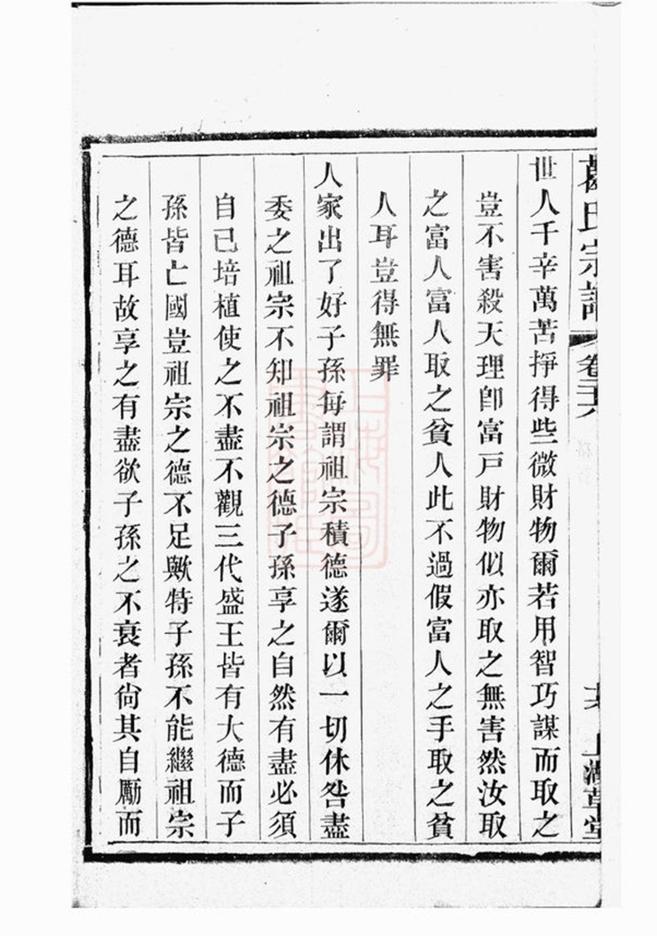 葛氏宗譜 卷三十六 十六 上湖草堂
世人千辛萬苦掙得些微財物爾若用智巧謀而取之
豈不害殺天理卽富戶財物似亦取之無害然汝取
之富人富人取之貧人此不過假富人之手取之貧
人耳豈得無罪
人家出了好子孫每謂祖宗積德遂爾以一切休咎盡
委之祖宗不知祖宗之德子孫享之自然有盡必須
自己培植使之不盡不觀三代盛王皆有大德而子
孫皆亡國豈祖宗之德不足歟特子孫不能繼祖宗
之德耳故享之有盡欲子孫之不衰者尙其自勵而